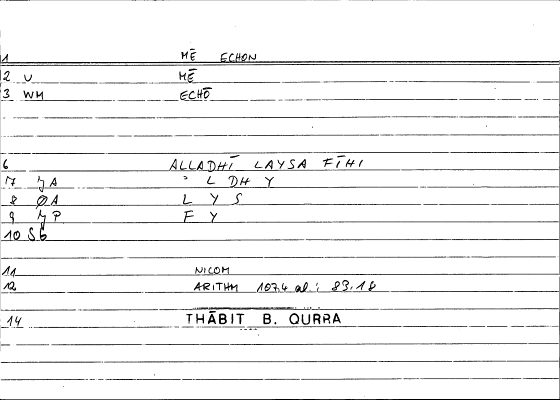 1 MĒ ECHON
2 U MĒ
3 WM ECHŌ
6 ALLADHĪ LAYSA FĪHI
7 JA ʾ L DH Y
8 ØA L Y S
9 JP F Y
10 SG
11 NICOM
12 ARITHM 107.4 al.: 83.18
14 THĀBIT B. QURRA